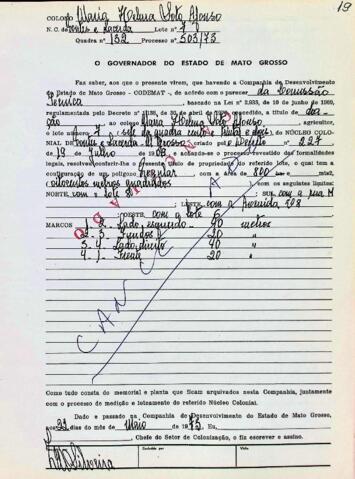 19
COLONO Maria Helena Soto Afonso
N. C. de Pontes e Lacerda Lote 7
Quadra nº 132 Processo nº 503/73
O GOVERNADOR DO ESTADO DE MATO GROSSO
Faz saber, aos que a presente virem, que havendo a Companhia de Desenvolvimento
do Estado de Mato Grosso - CODEMAT -, de acordo com o parecer da Comissão
Técnica, baseado na Lei nº 2.933, de 10 de junho de 1969,
regulamentada pelo Decreto nº de 30 de abril de titulado a título de doa-
ção ao colono Maria Helena Soto Afonso, agricultor,
o lote número 7 sete da quadra cento trinta e dois, do NÚCLEO COLO-
NIAL de Pontes e Lacerda M. Grosso, criado pelo Decreto nº 227
de 19 de Julho de 19 e achando-se o processo revestido das formalidades
legais, resolveu conferir-lhe o presente título de propriedade do referido lote, o qual tem a
configuração de um polígono regular com a área de 800 mts2,
oitocentos metros quadrados com as seguintes limites:
NORTE com o lote SUL com a rua M
LESTE com a Avenida 708
OESTE com o lote 6
MARCOS 1 - 2 - Lado esquerdo 40 metros
2 - 3 - Fundos 20 "
3 - 4 - Lado direito 40 "
4 - 1 - Frente 20 "
CANCELADO
CANCELADO
Como tudo consta do memorial e planta que ficam arquivados nesta Companhia, juntamente
com o processo de medição e loteamento do referido Núcleo Colonial.
Dado e passado na Companhia de Desenvolvimento do Estado de Mato Grosso,
aos 22 dias do mês de Maio de 1973. Eu,
Chefe do Setor de Colonização, o fiz escrever e assino.
Conferido por
Visto